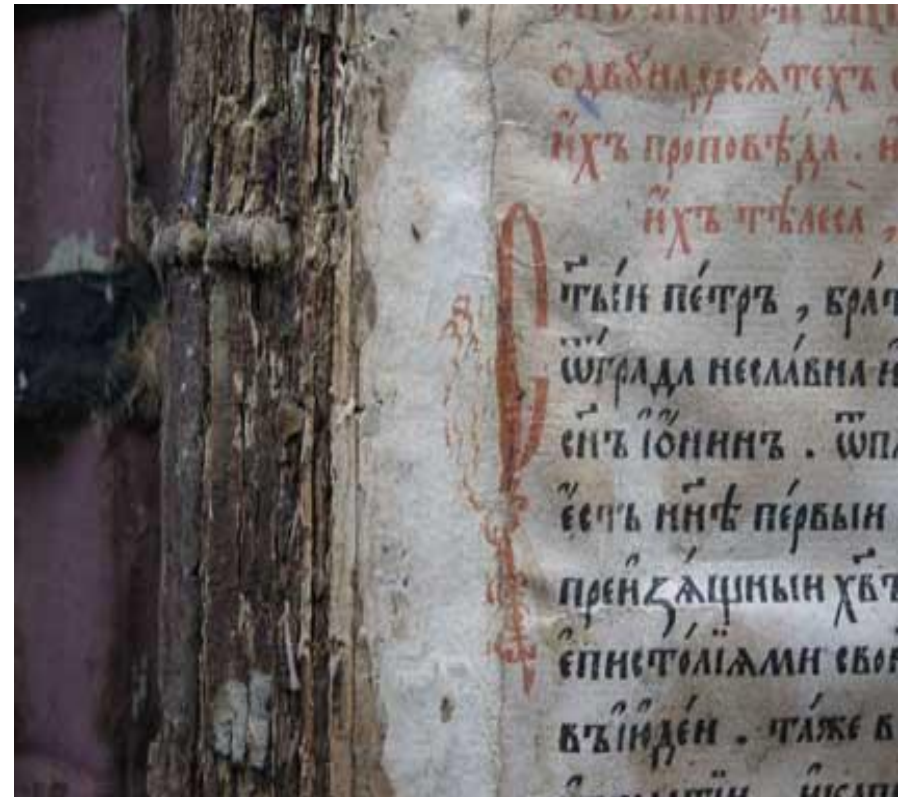 ѻ҆двꙋна́десѧтехъ с
и҆́хъ проповѣ́да . и
и҆́хъ тѣлеса̀ ,
С
ты́и пе́тръ , бра́т
ѿгра́да несла́вна и
сн҃ъ і҆ѡ́нинъ . ѿпл
є҆́сть нн҃ѣ пе́рвыи
преизѧ́щныи хв҃ъ
є҆писто́лїѧми свои
въі҆ꙋде́и . та́же в